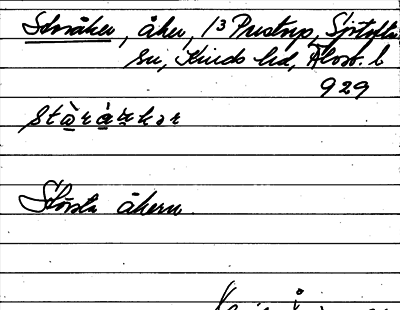 Storåker, åker, 13 Prustorp, Sjötofta
sn, Kinds hd, Älvsb. l
929
Största åkern